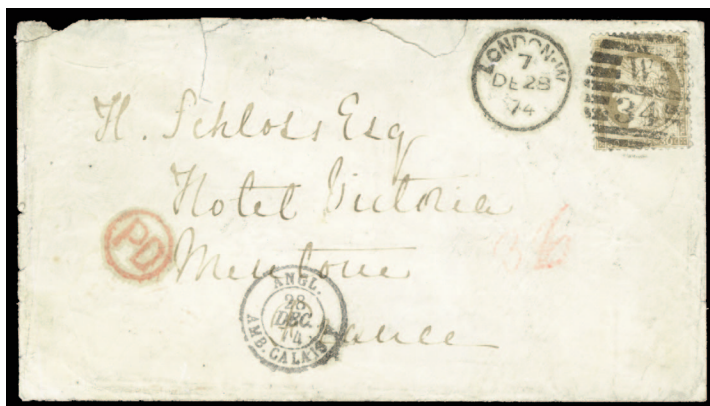 LONDON·W
7
DE 28
74
W
34
H. Schloss Esq
Hotel Victoria
Mentone
France
PD
ANGL.
28
DEC.
74
AMB. CALAIS